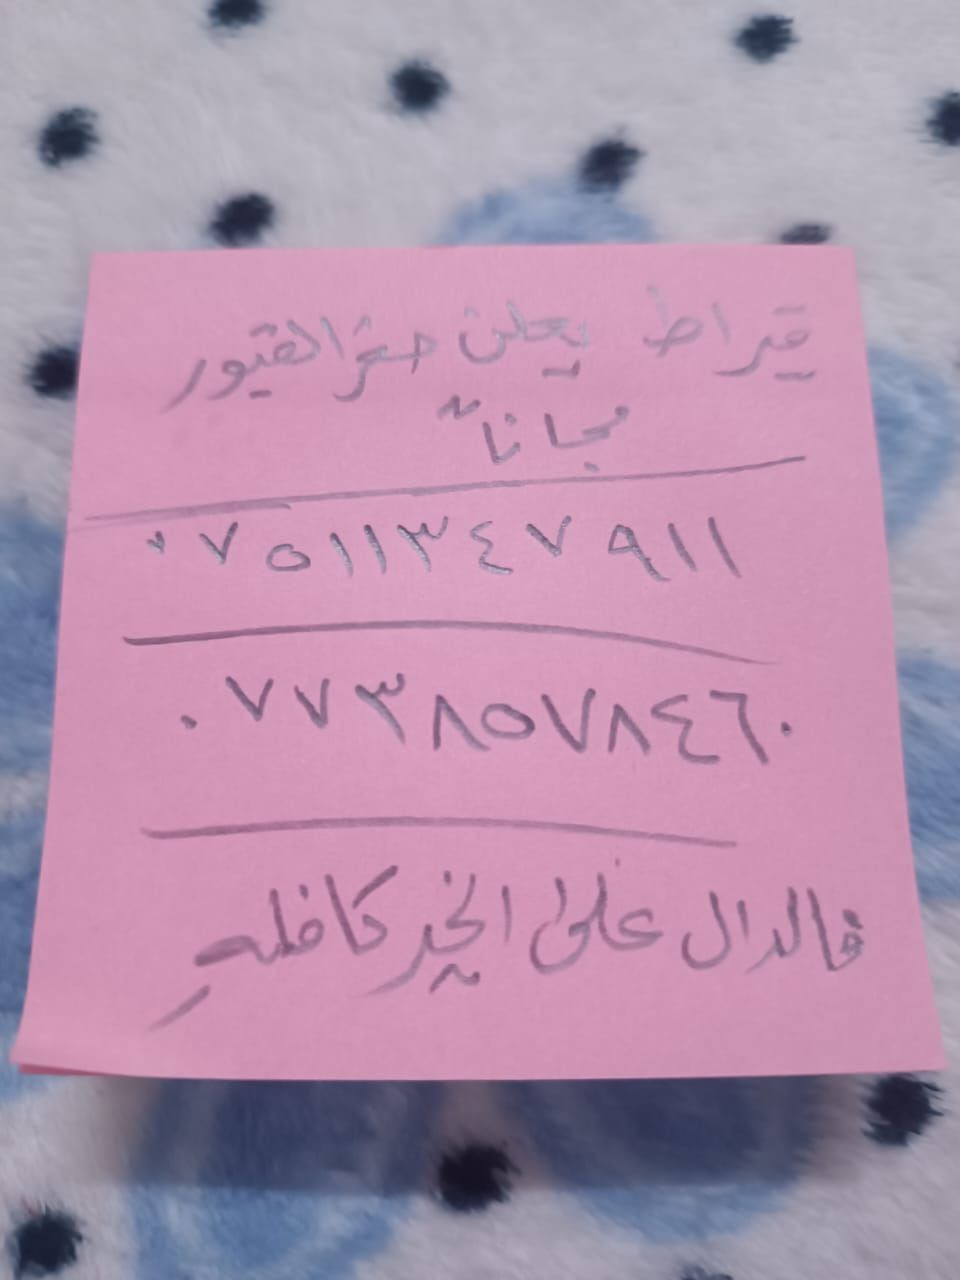 قيراط يعلن حفر القبور
مجاناً
٠٧٥١١٣٤٧٩١١
٠٧٧٣٨٥٧٨٤٦٠
فالدال على الخير كافله